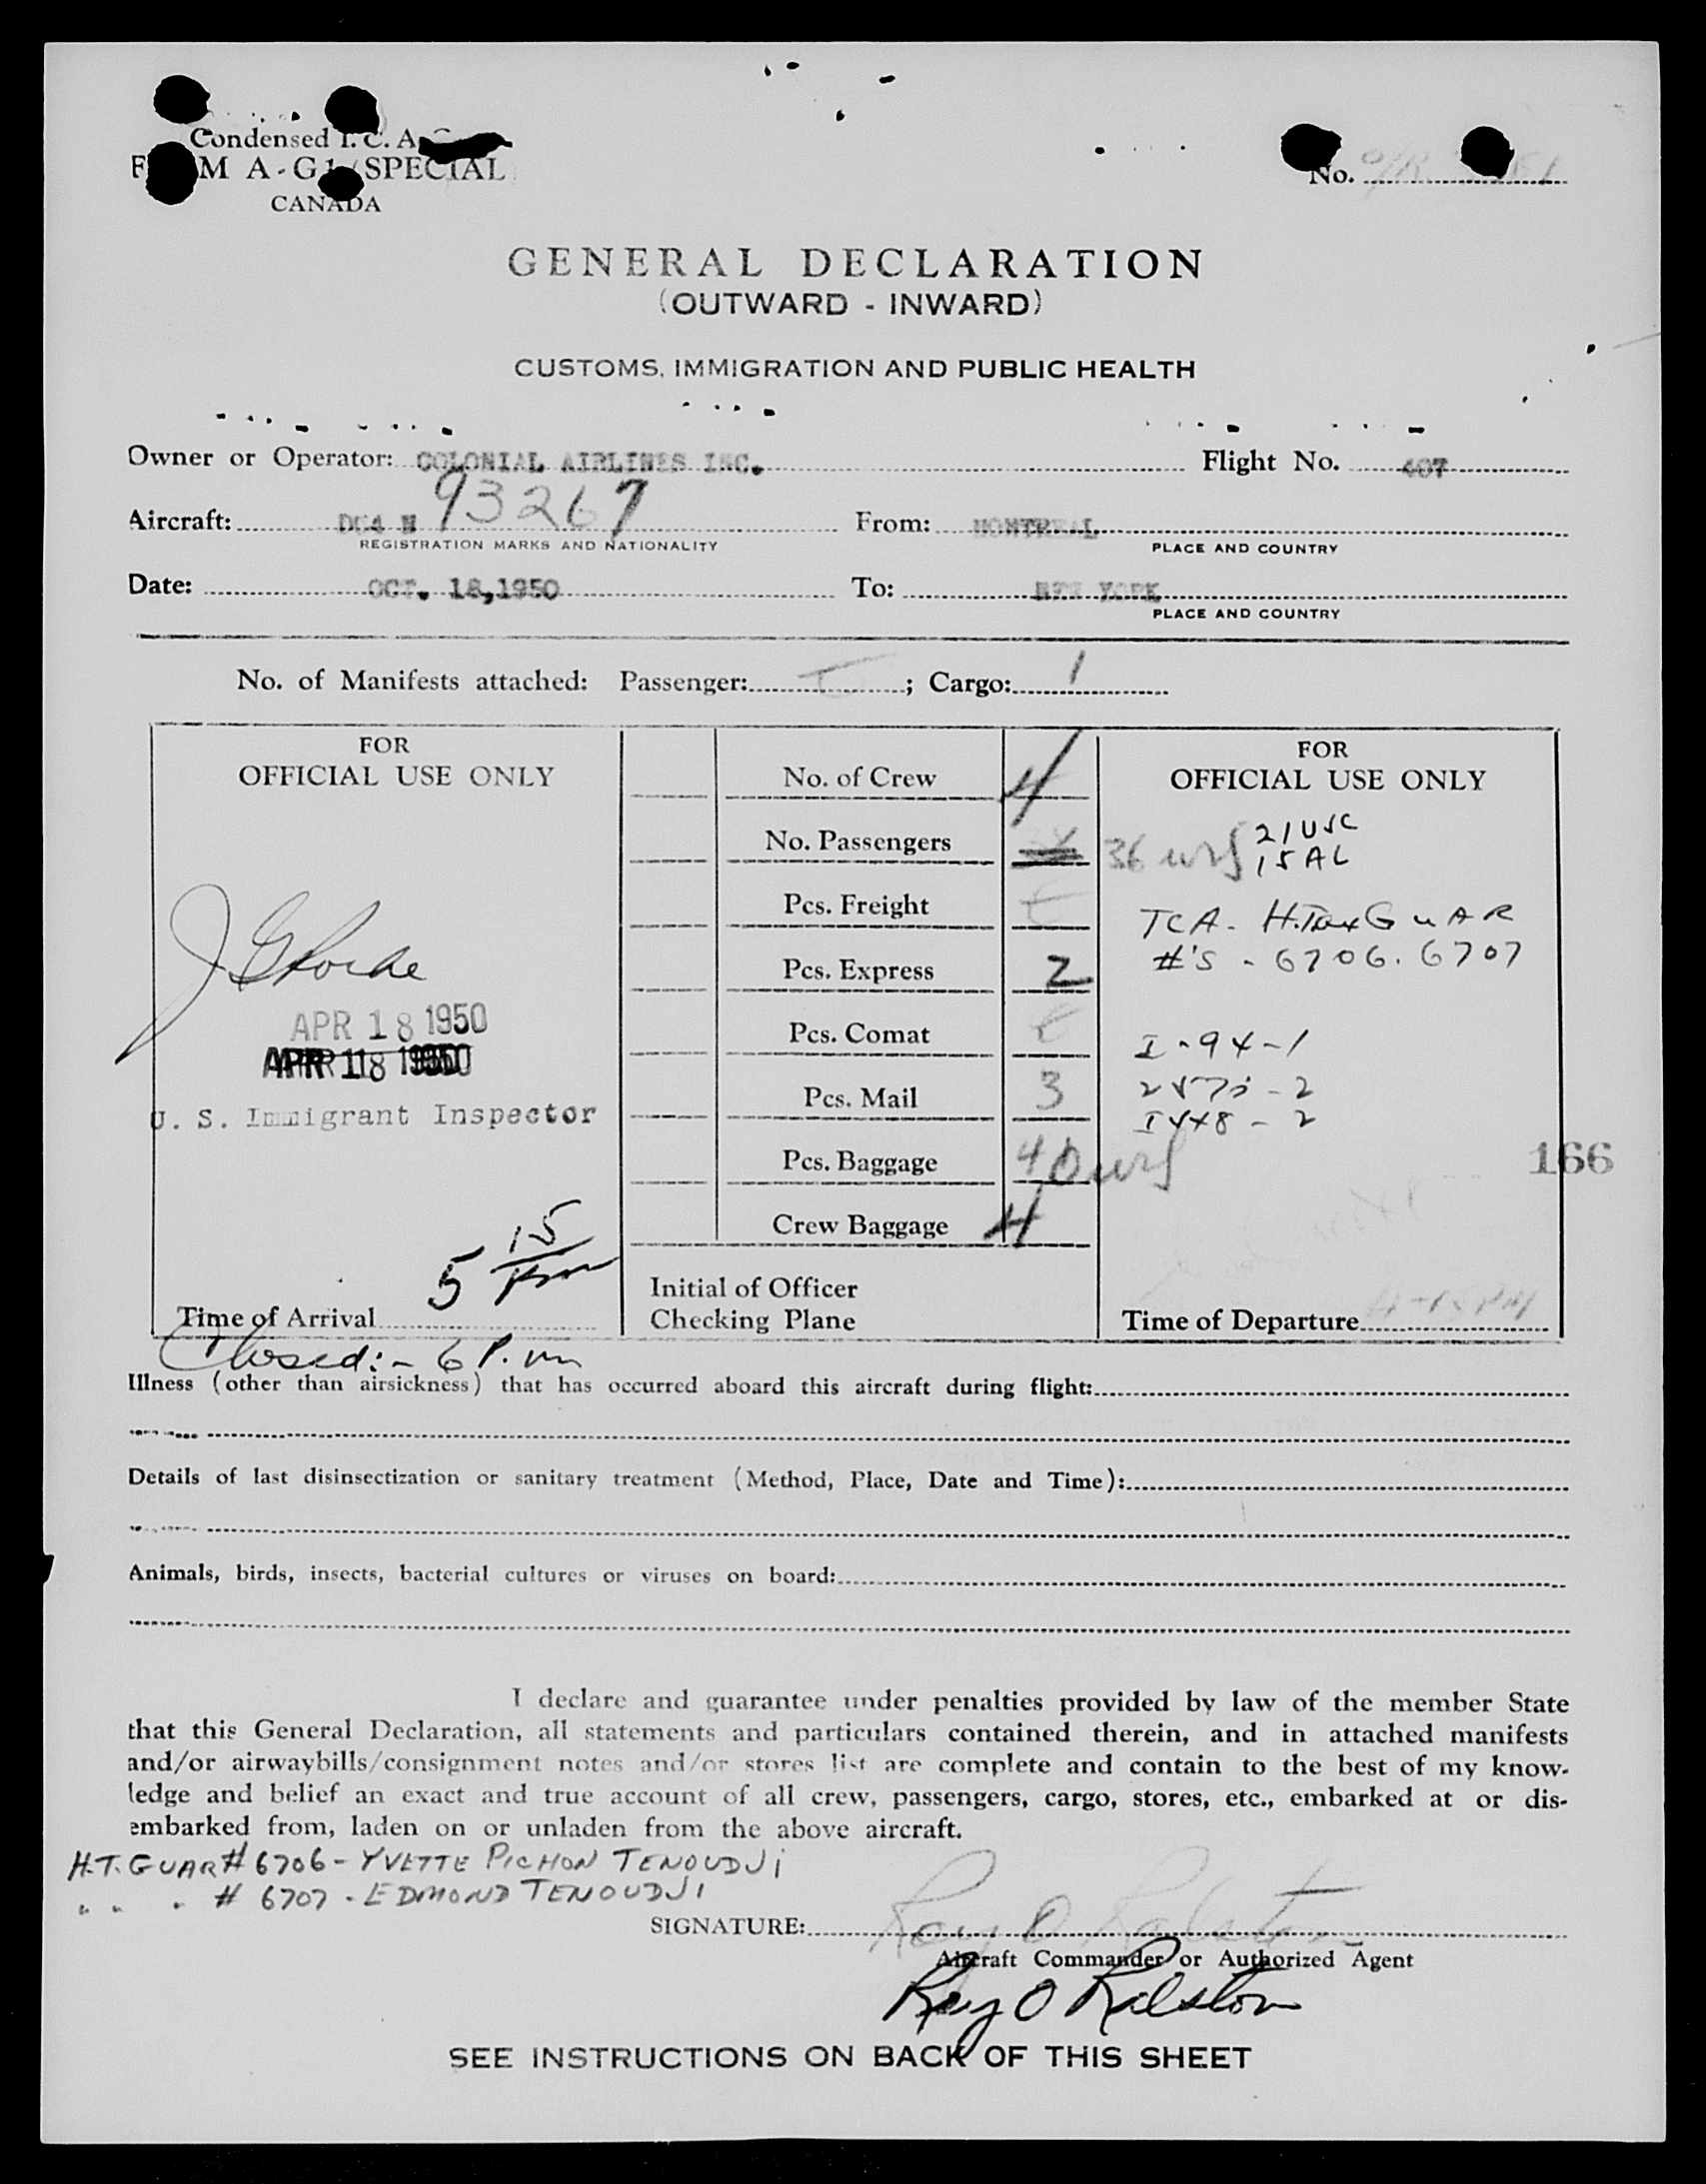 Condensed I. C. A.
M A-G1 SPECIAL
CANADA
No.
GENERAL DECLARATION
(OUTWARD - INWARD)
CUSTOMS, IMMIGRATION AND PUBLIC HEALTH
Owner or Operator: COLONIAL AIRLINES INC. Flight No. 407
Aircraft: DC4 N 93267 From: MONTREAL
REGISTRATION MARKS AND NATIONALITY PLACE AND COUNTRY
Date: OCT. 18,1950 To: NEW YORK
PLACE AND COUNTRY
No. of Manifests attached: Passenger: ; Cargo: 1
FOR
OFFICIAL USE ONLY
APR 18 1950
APR 18 1950
U. S. Immigrant Inspector
5 15 Pm
Time of Arrival
Closed:- 6 P.m
No. of Crew 4
No. Passengers
Pcs. Freight
Pcs. Express 2
Pcs. Comat
Pcs. Mail 3
Pcs. Baggage 40
Crew Baggage 4
Initial of Officer
Checking Plane
FOR
OFFICIAL USE ONLY
36 21 USC
15 AL
TCA - GUAR
#'S - 6706. 6707
I-94-1
- 2
I 448 - 2
166
Time of Departure
Illness (other than airsickness) that has occurred aboard this aircraft during flight:
Details of last disinsectization or sanitary treatment (Method, Place, Date and Time):
Animals, birds, insects, bacterial cultures or viruses on board:
I declare and guarantee under penalties provided by law of the member State
that this General Declaration, all statements and particulars contained therein, and in attached manifests
and/or airwaybills/consignment notes and/or stores list are complete and contain to the best of my know-
ledge and belief an exact and true account of all crew, passengers, cargo, stores, etc., embarked at or dis-
embarked from, laden on or unladen from the above aircraft.
H.T. GUAR # 6706 - YVETTE PICHON TENOUDJI
" " " # 6707 - EDMOND TENOUDJI
SIGNATURE: Roy O Ralston
Aircraft Commander or Authorized Agent
Roy O Ralston
SEE INSTRUCTIONS ON BACK OF THIS SHEET